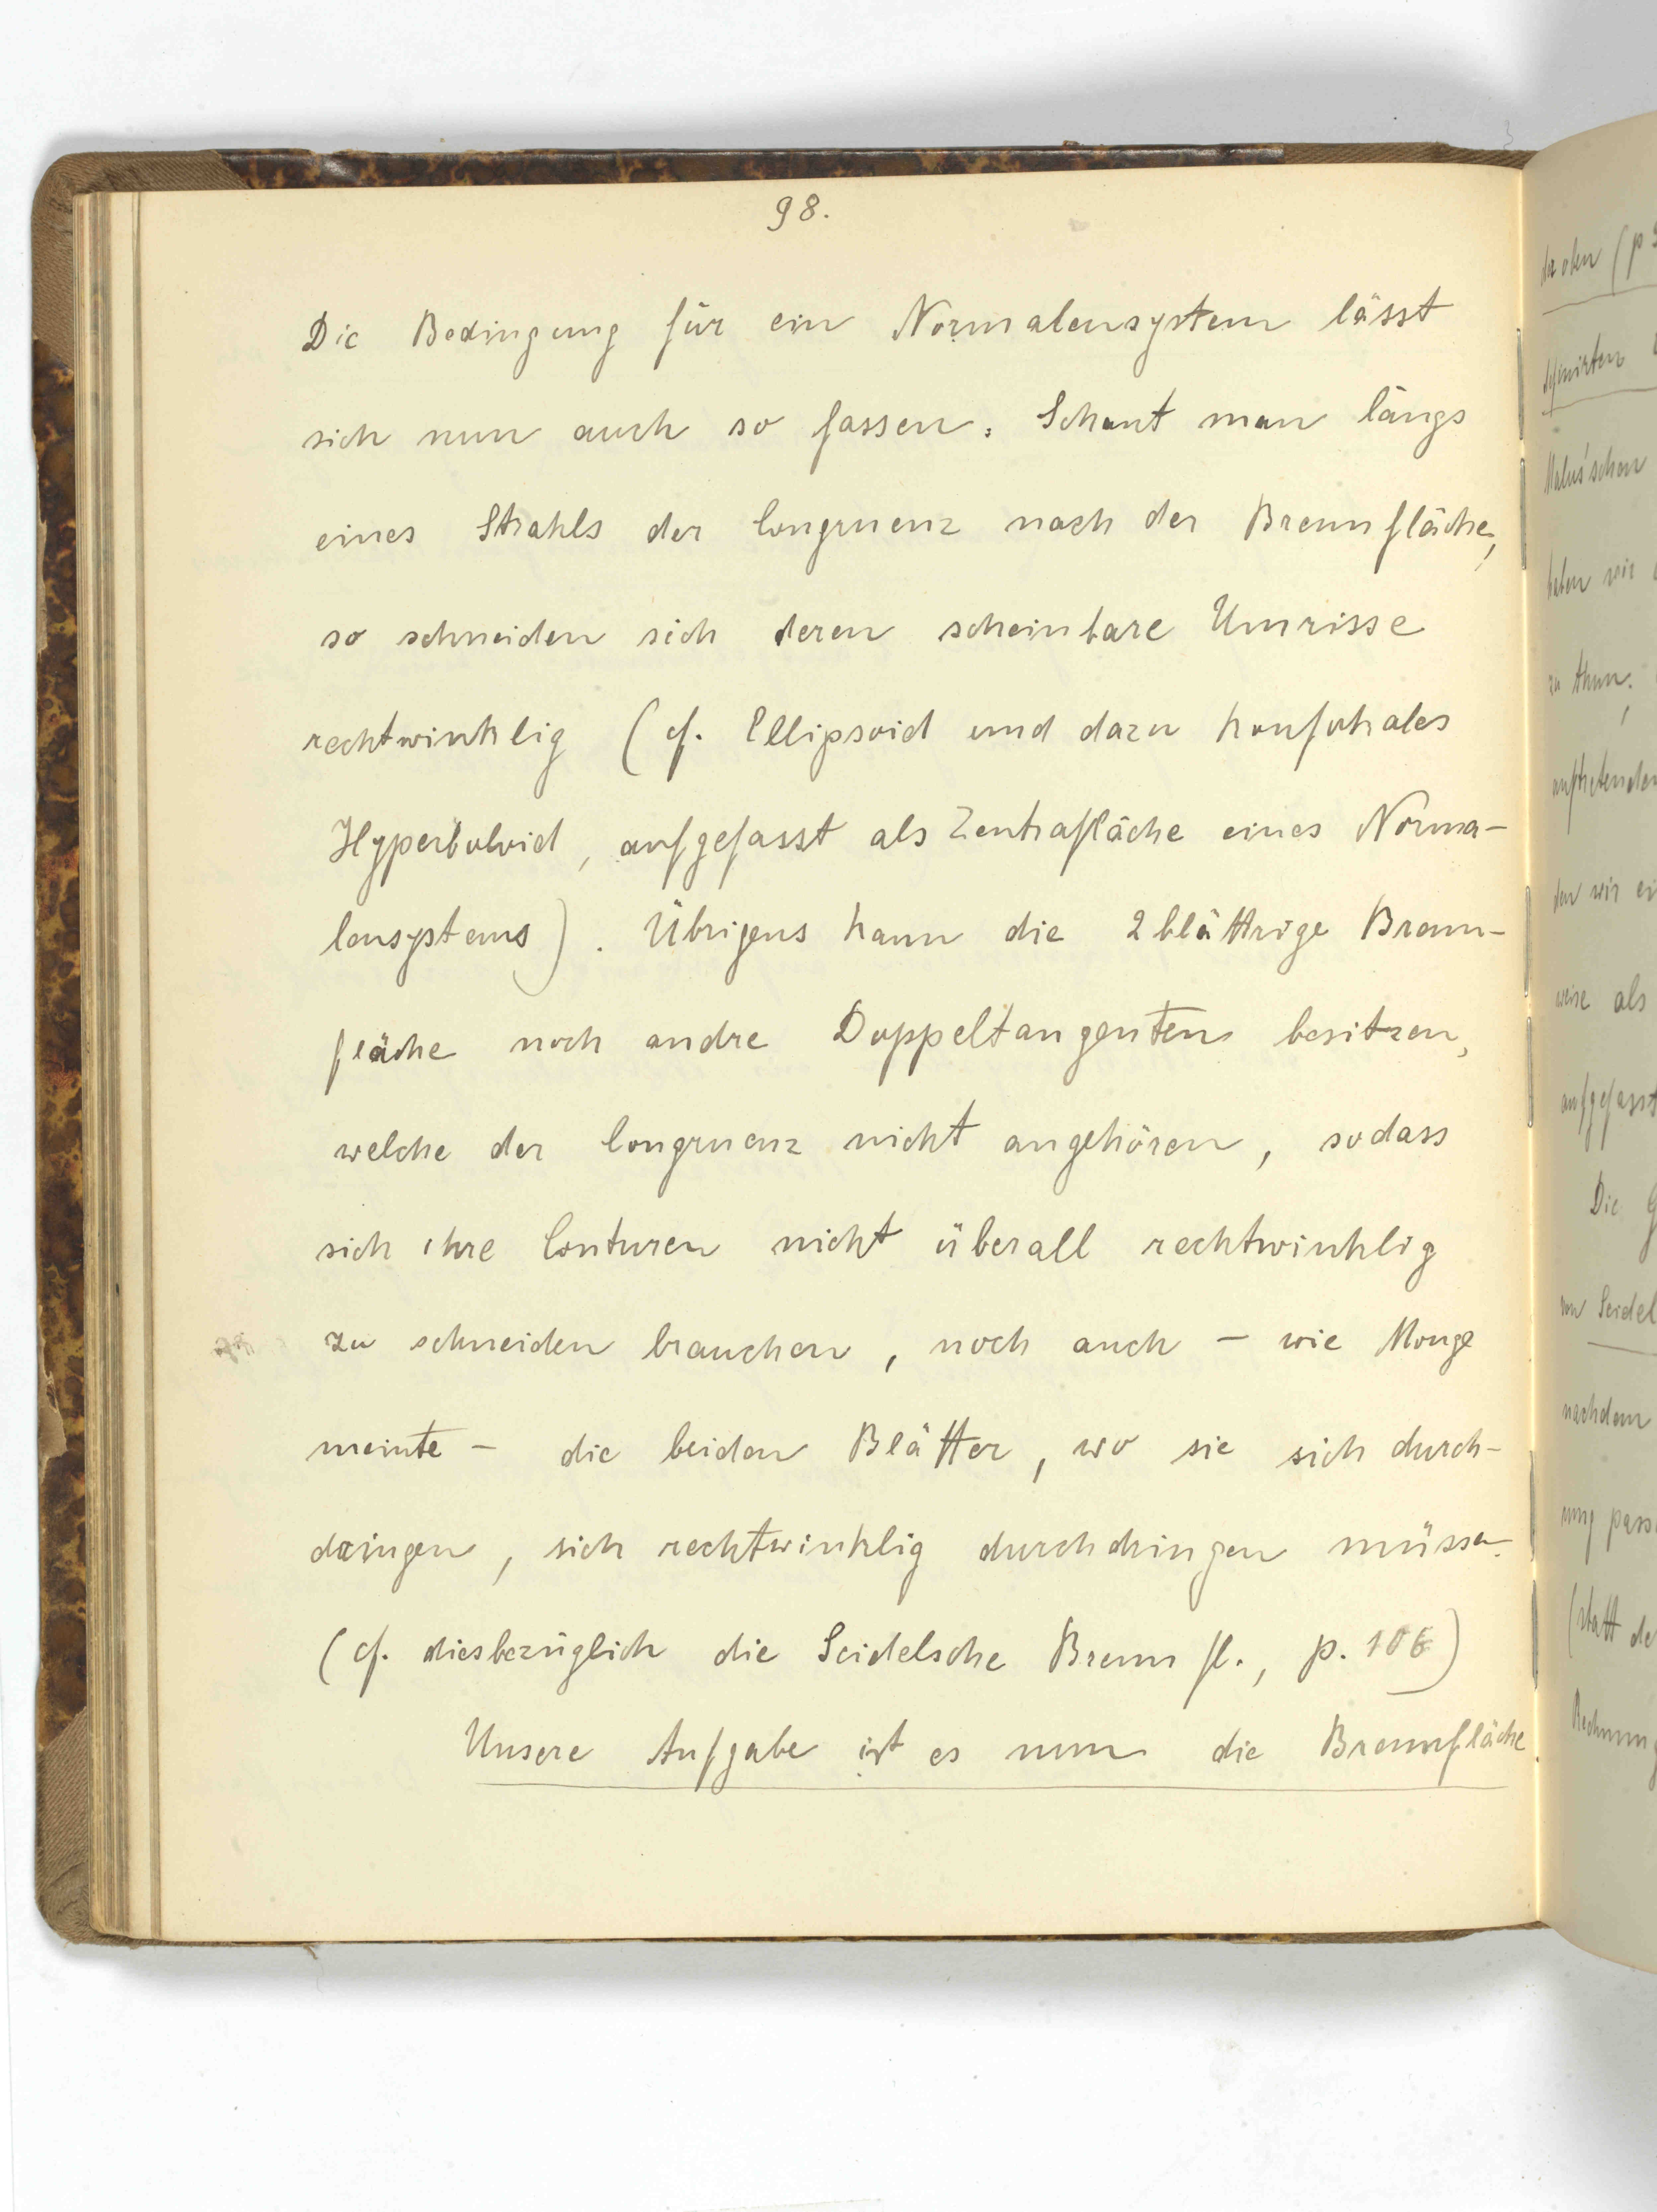 98.
Die Bedingung für ein Normalensystem lässt
sich nun auch so fassen: Schaut man längs
eines Strahls der Congruenz nach der Brennfläche,
so schneiden sich deren scheinbare Umrisse
rechtwinklig (cf. Ellipsoid und dazu konfokales
Hyperboloid, aufgefasst als Zentrafläche eines Norma-
lensystems). Übrigens kann die 2 blättrige Brenn-
fläche noch andre Doppeltangenten besitzen,
welche der Congruenz nicht angehören, sodass
sich ihre Conturen nicht überall rechtwinklig
zu schneiden brauchen, noch auch - wie Monge
meinte - die beiden Blätter, wo sie sich durch-
dringen, sich rechtwinklig durchdringen müssen.
(cf. diesbezüglich die Seidelsche Brennfl., p. 106)
Unsere Aufgabe ist es nun die Brennfläche
der oben (p
definirten
Malus'schen
haben wir
zu thun.
auftretenden
den wir
weise als
aufgefasst
Die
von Seidel
nachdem
ung
(statt
Rechnung